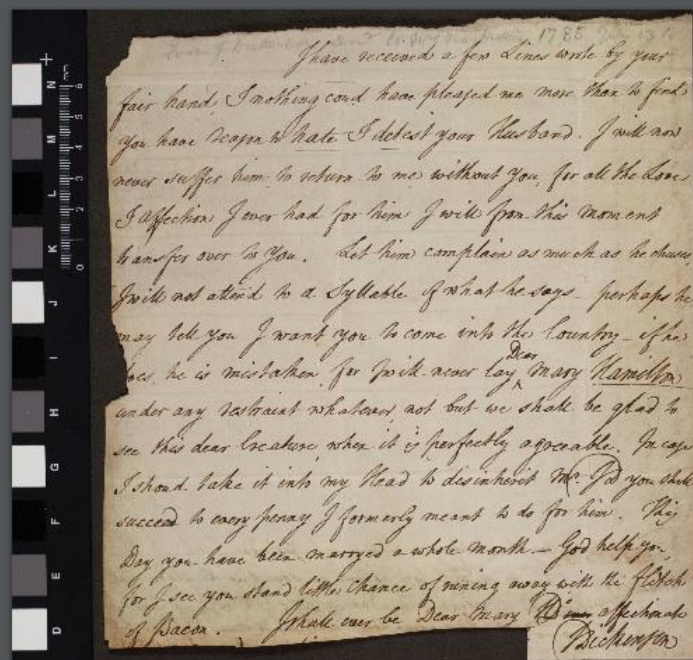 1785 July 13th
I have received a few Lines wrote by your
fair hand, & nothing coud have pleased me more than to find
you have reason to hate & detest your Husband. I will now
never suffer him to return to me without you, for all the Love
& affection I ever had for him I will from this moment
transfer over to You. Let him complain as much as he chuses,
I will not attend to a Syllable of what he says - perhaps he
may tell you I want you to come into the Country - if he
does, he is mistaken for I will never lay Dear Mary Hamilton
under any restraint whatever not but we shall be glad to
see this dear Creature when it is perfectly agreeable. In case
I shoud take it into my Head to disinherit Mr. JD you shall
succeed to every penny I formerly meant to do for him. This
Day you have been marryed a whole month - God help you,
for I see you stand little Chance of runing away with the flitch
of Bacon. I shall ever be Dear Mary affectionate
Dickenson